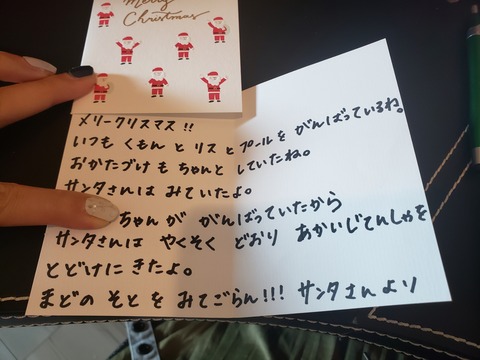 Merry
Christmas
メリークリスマス!!
いつも くもん と リス と プール を がんばっているね。
おかたづけ も ちゃんと していたね。
サンタさんは みていたよ。
ちゃん が がんばっていたから
サンタさんは やくそく どおり あかいじてんしゃを
とどけに きたよ。
まどの そと を みてごらん!!! サンタさんより